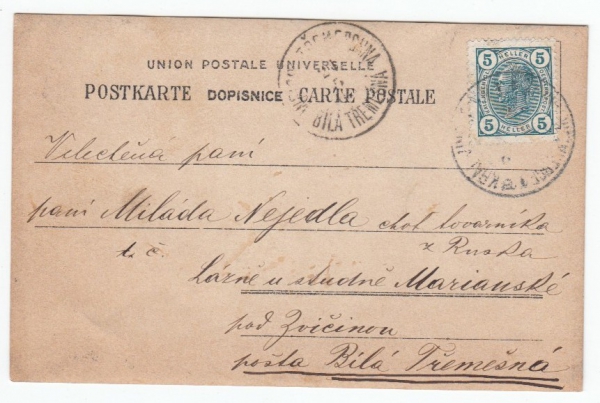 UNION POSTALE UNIVERSELLE
POSTKARTE DOPISNICE CARTE POSTALE
BÍLÁ TŘEMEŠNÁ
5 5
HELLER
5 5
HELLER
Velectěná paní
paní Miláda Nejedla choť továrníka
z Ruska
t. č.
Lázně u studně Marianské
pod Zvičinou
pošta Bílá Třemešná